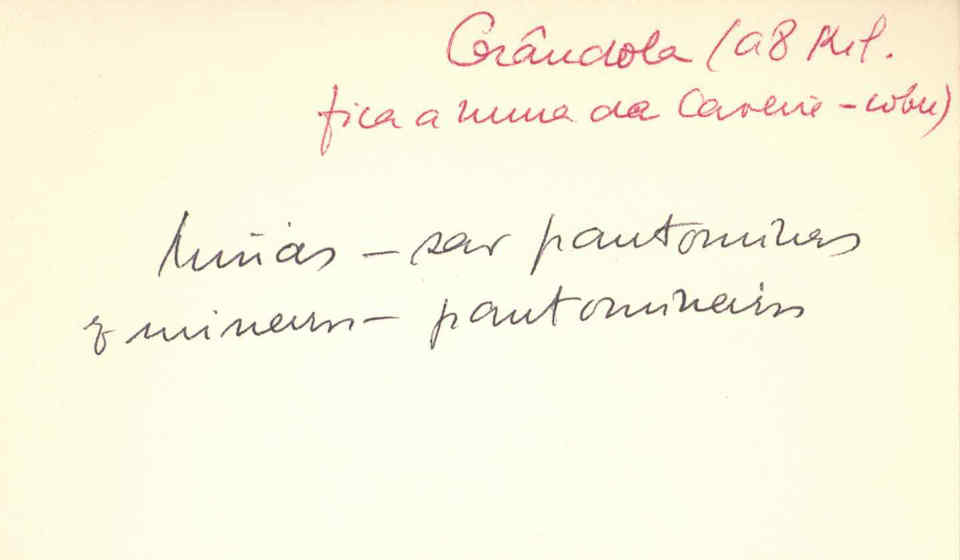 Grândola (a 8 kil.
fica a mina da Caveira - cobre)
Minas - sar pantominas
e mineiros - pantomineiros